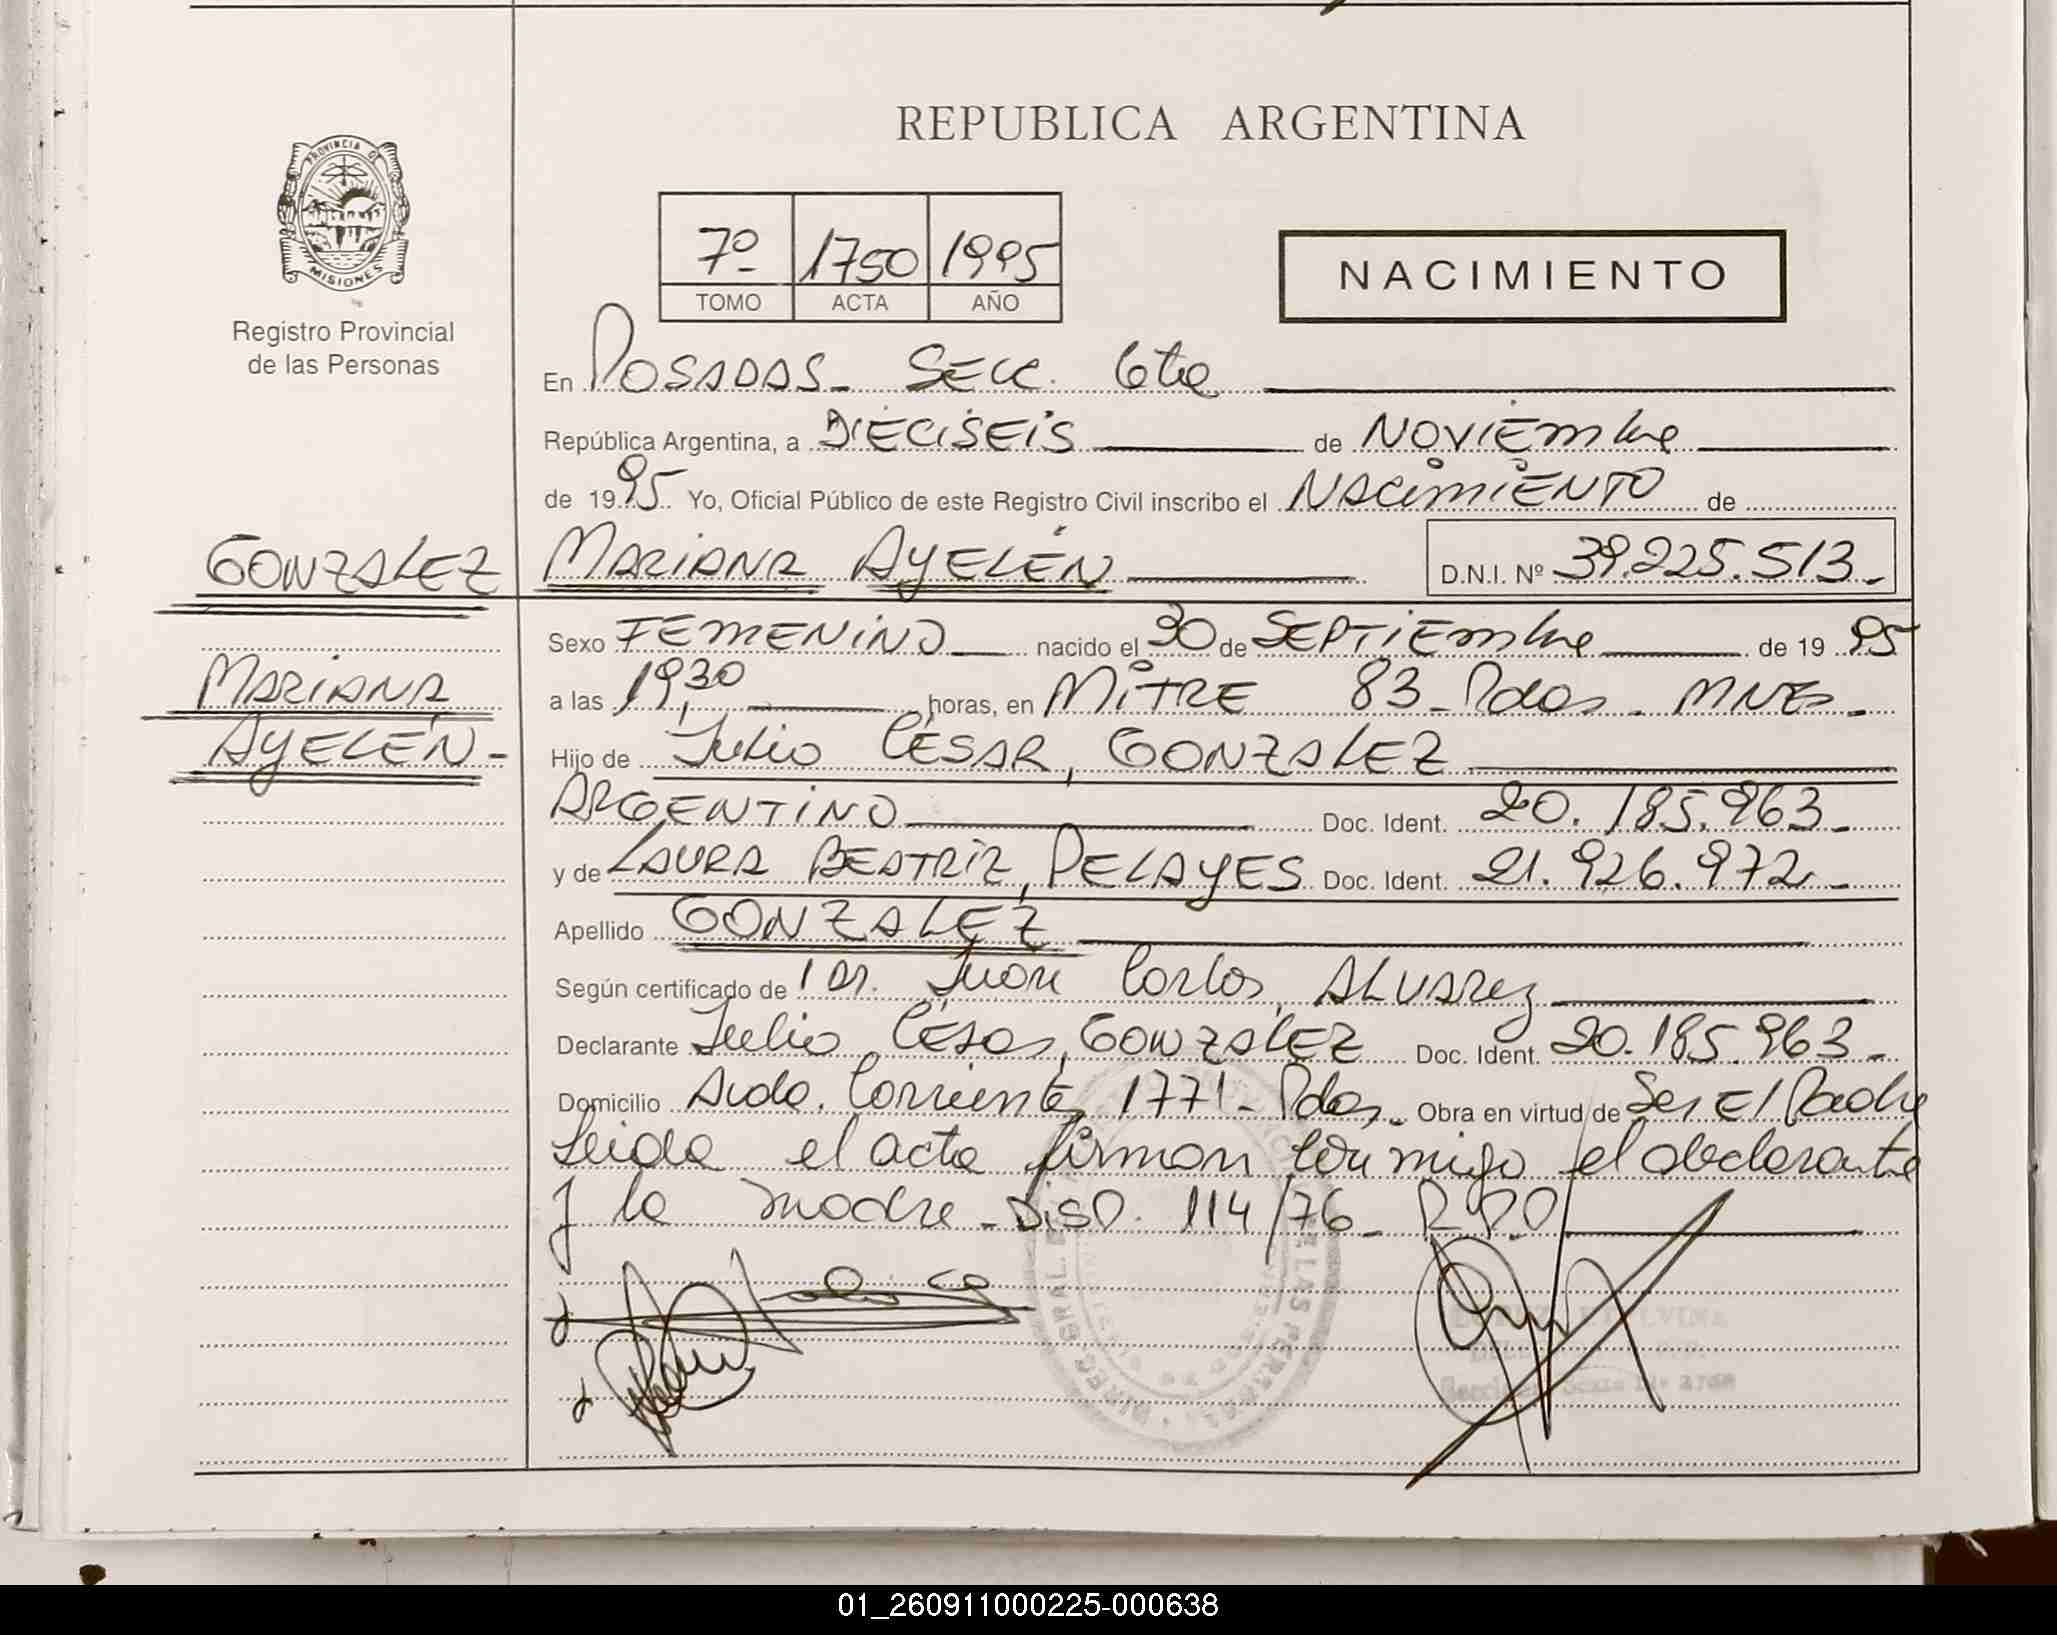 REPUBLICA ARGENTINA
PROVINCIA DE
MISIONES
Registro Provincial
de las Personas
7º 1750 1995
TOMO ACTA AÑO
NACIMIENTO
En POSADAS - SECC. 6ta
República Argentina, a DIECISEIS de NOVIEmbre
de 1995 Yo, Oficial Público de este Registro Civil inscribo el NACIMIENTO de
GONZALEZ MARIANA AYELÉN D.N.I. Nº 39.225.513.-
Sexo FEMENINO nacido el 30 de SEPTIEmbre de 19 95
MARIANA
a las 19,30 horas, en MITRE 83 - Pdas. MNES.
AYELÉN -
Hijo de Julio CÉSAR, GONZALEZ
ARGENTINO Doc. Ident. 20.185.963.-
y de LAURA BEATRIZ, PELAYES Doc. Ident. 21.926.972.-
Apellido GONZALEZ
Según certificado de Dr. Juan Carlos, ALVARez
Declarante Julio César, GONZALEZ Doc. Ident. 20.185.963.-
Domicilio Avda. Corrientes 1771 - Pdas. Obra en virtud de Ser El Padre
Leida el acta firman conmigo el declarante
y la madre - DISP. 114/76 - R.P.P
01_260911000225-000638